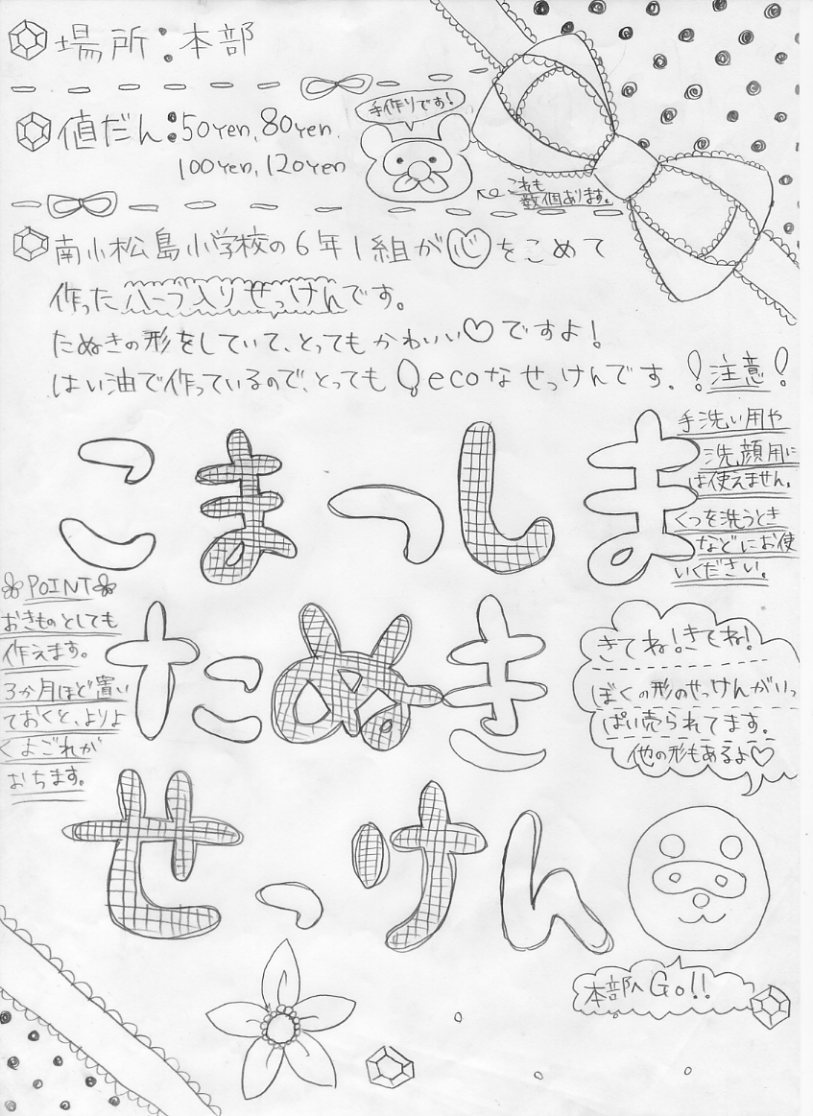 場所:本部
値だん:50yen,80yen,
100yen,120yen
手作りです!
これも
数個あります。
南小松島小学校の6年1組が心をこめて
作ったハーブ入りせっけんです。
たぬきの形をしていて、とってもかわいい♡ですよ!
はい油で作っているので、とってもecoなせっけんです。
!注意!
手洗い用や
洗顔用に
は使えません。
くつを洗うとき
などにお使
いください。
こまつしま
たぬき
せっけん
POINT
おきものとしても
作えます。
3か月ほど置い
ておくと、よりよ
くよごれが
おちます。
きてね!きてね!
ぼくの形のせっけんがいっ
ぱい売られてます。
他の形もあるよ♡
本部へGo!!